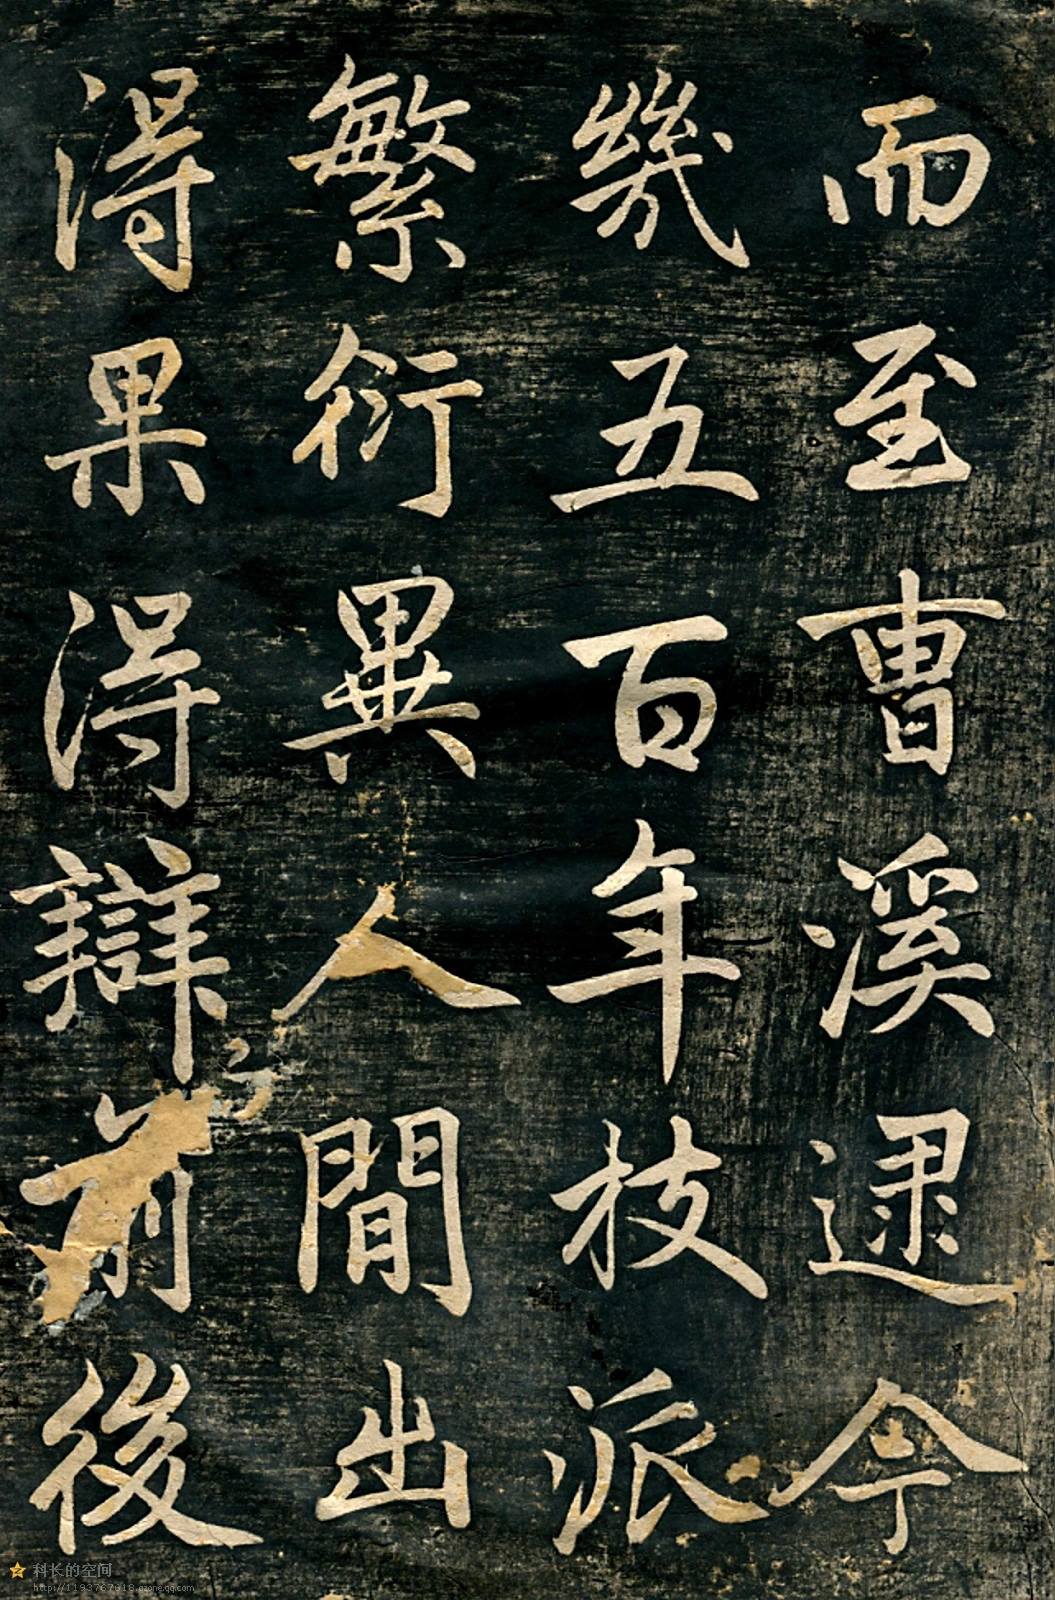 而至曹溪逮今
幾五百年枝派
繁衍異人間出
得果得辯前後
科长的空间
http://1193767018.qzone.qq.com